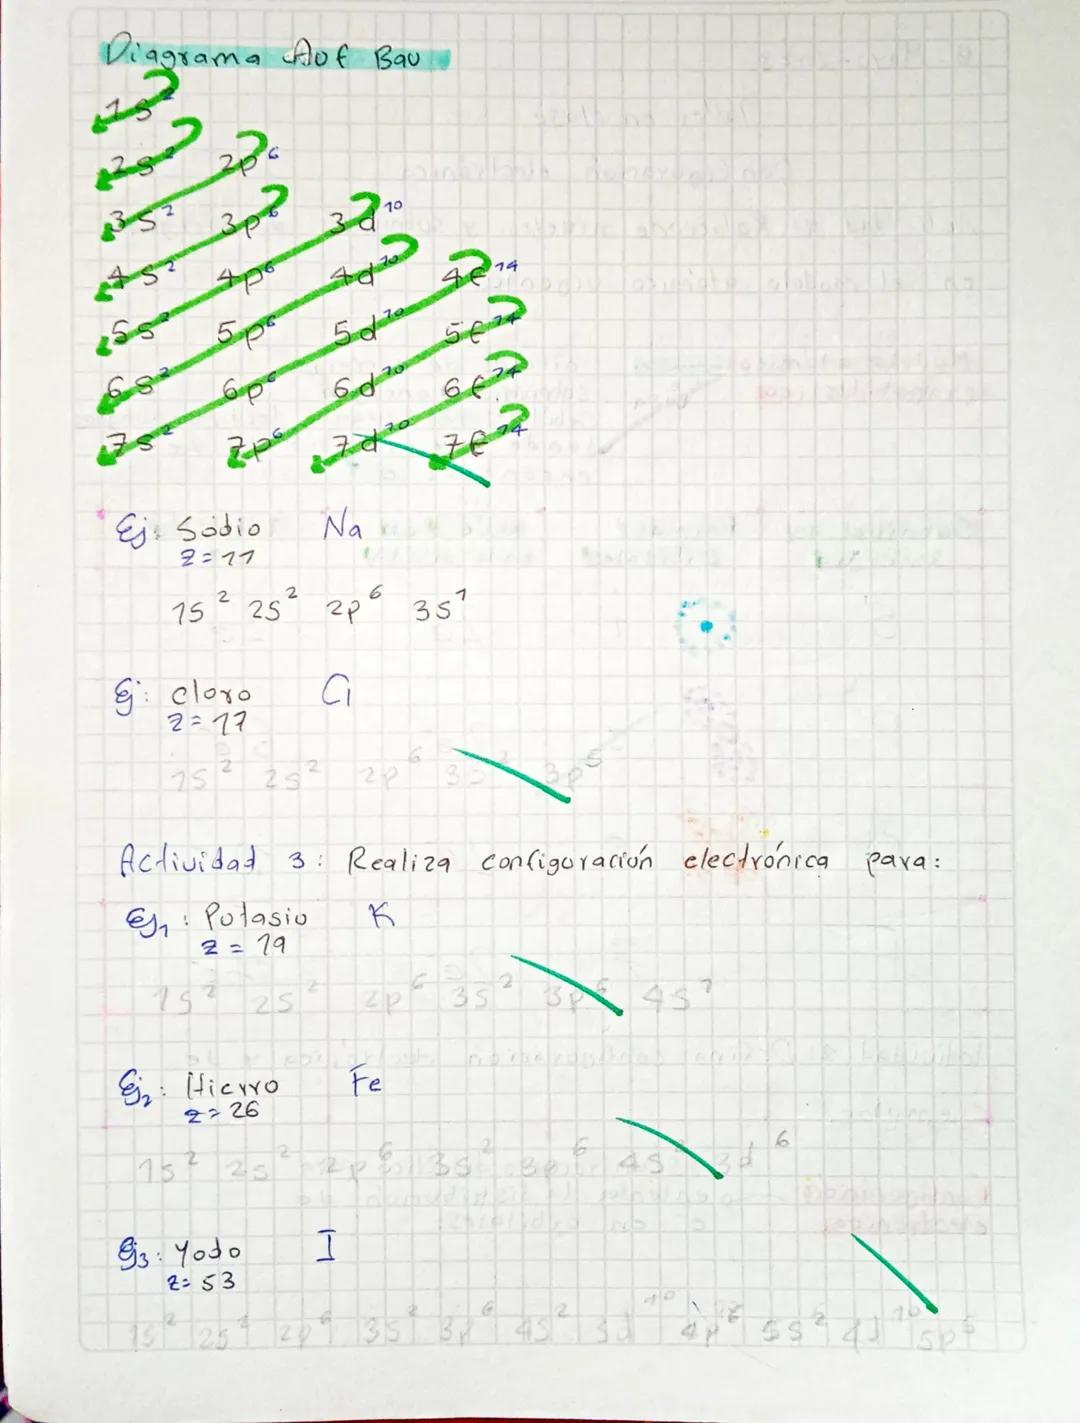 Diagrama Auf Bau
1s²
2s² 2p⁶
3s² 3p⁶ 3d¹⁰
4s² 4p⁶ 4d¹⁰ 4f¹⁴
5s² 5p⁶ 5d¹⁰ 5f¹⁴
6s² 6p⁶ 6d¹⁰ 6f¹⁴
7s² 7p⁶ 7d¹⁰ 7f¹⁴
Ej: Sodio Na
z=11
1s² 2s² 2p⁶ 3s¹
Ej: cloro Cl
z=17
1s² 2s² 2p⁶ 3s² 3p⁵
Actividad 3: Realiza configuración electrónica para:
Ej₁: Potasio K
z=19
1s² 2s² 2p⁶ 3s² 3p⁶ 4s¹
Ej₂: Hierro Fe
z=26
1s² 2s² 2p⁶ 3s² 3p⁶ 4s² 3d⁶
Ej3: Yodo I
z=53
1s² 2s² 2p⁶ 3s² 3p⁶ 4s² 3d¹⁰ 4p 5s² 4d¹⁰ 5p⁵